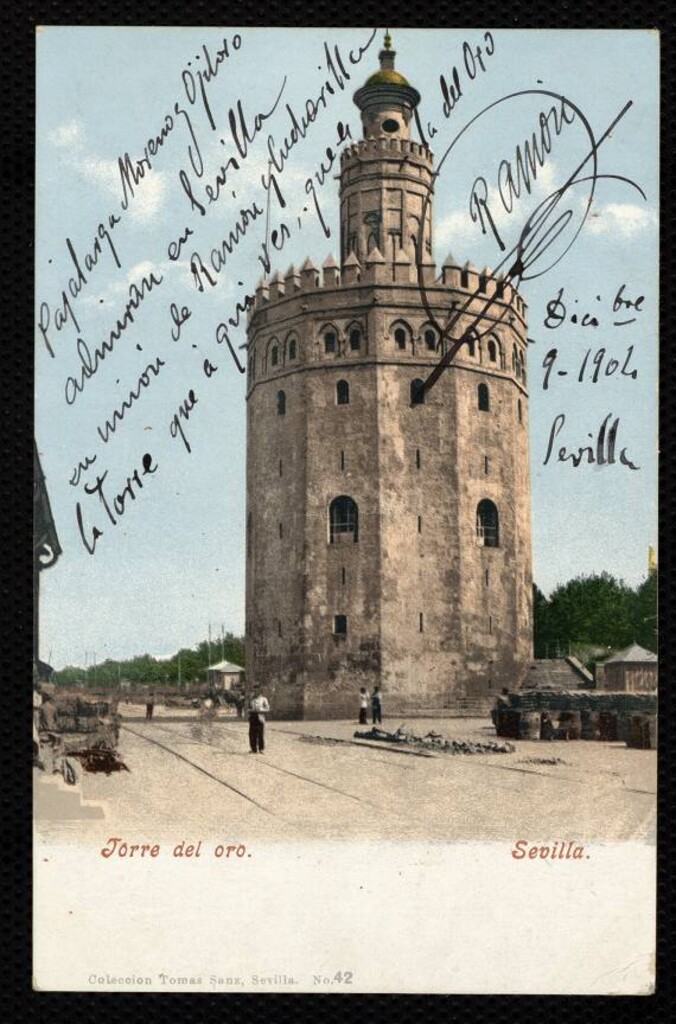 Pajalarga Moreno y Ojiloro
admiran en Sevilla
en unión de Ramón y
la Torre que á quí ves, que es la del Oro
Ramón
Dici bre
9-1904
Sevilla
Torre del oro.
Sevilla.
Coleccion Tomas Sanz, Sevilla. No.42